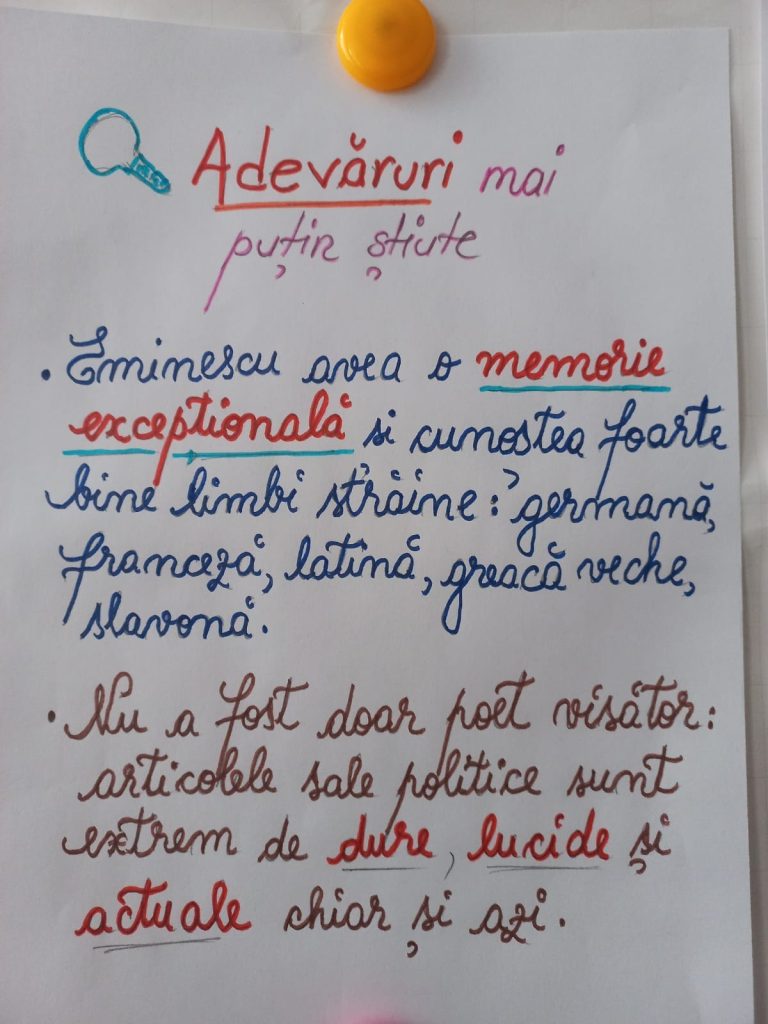 Adevăruri mai
puțin știute
• Eminescu avea o memorie
excepțională și cunoștea foarte
bine limbi străine: germană,
franceză, latină, greacă veche,
slavonă.
• Nu a fost doar poet visător:
articolele sale politice sunt
extrem de dure, lucide și
actuale chiar și azi.